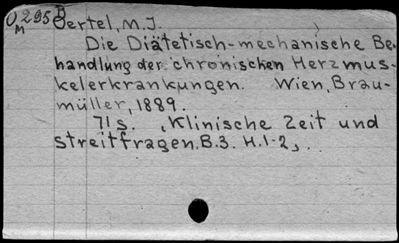 O 295 B
M
Oertel, M.J.
Die Diätetisch-mechanische Be-
handlung der chronischen Herzmus-
kelerkrankungen. Wien, Brau-
müller, 1889.
71 s. , Klinische Zeit und
streitfragen, B.3. H.1-2, .